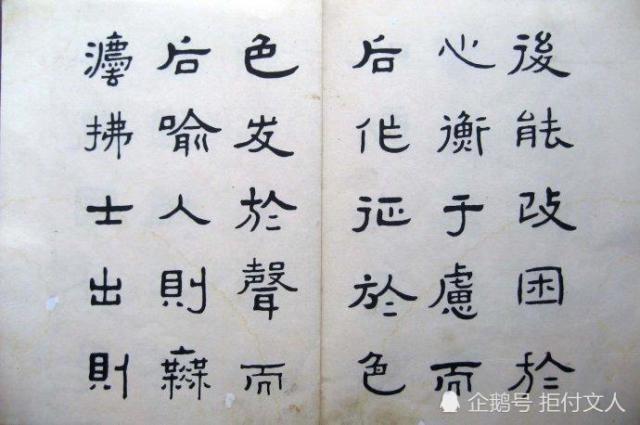 後能改困於
心衡于慮而
后作征於色
色发於聲而
后喻人則無
灋拂士出則
企鹅号 拒付文人